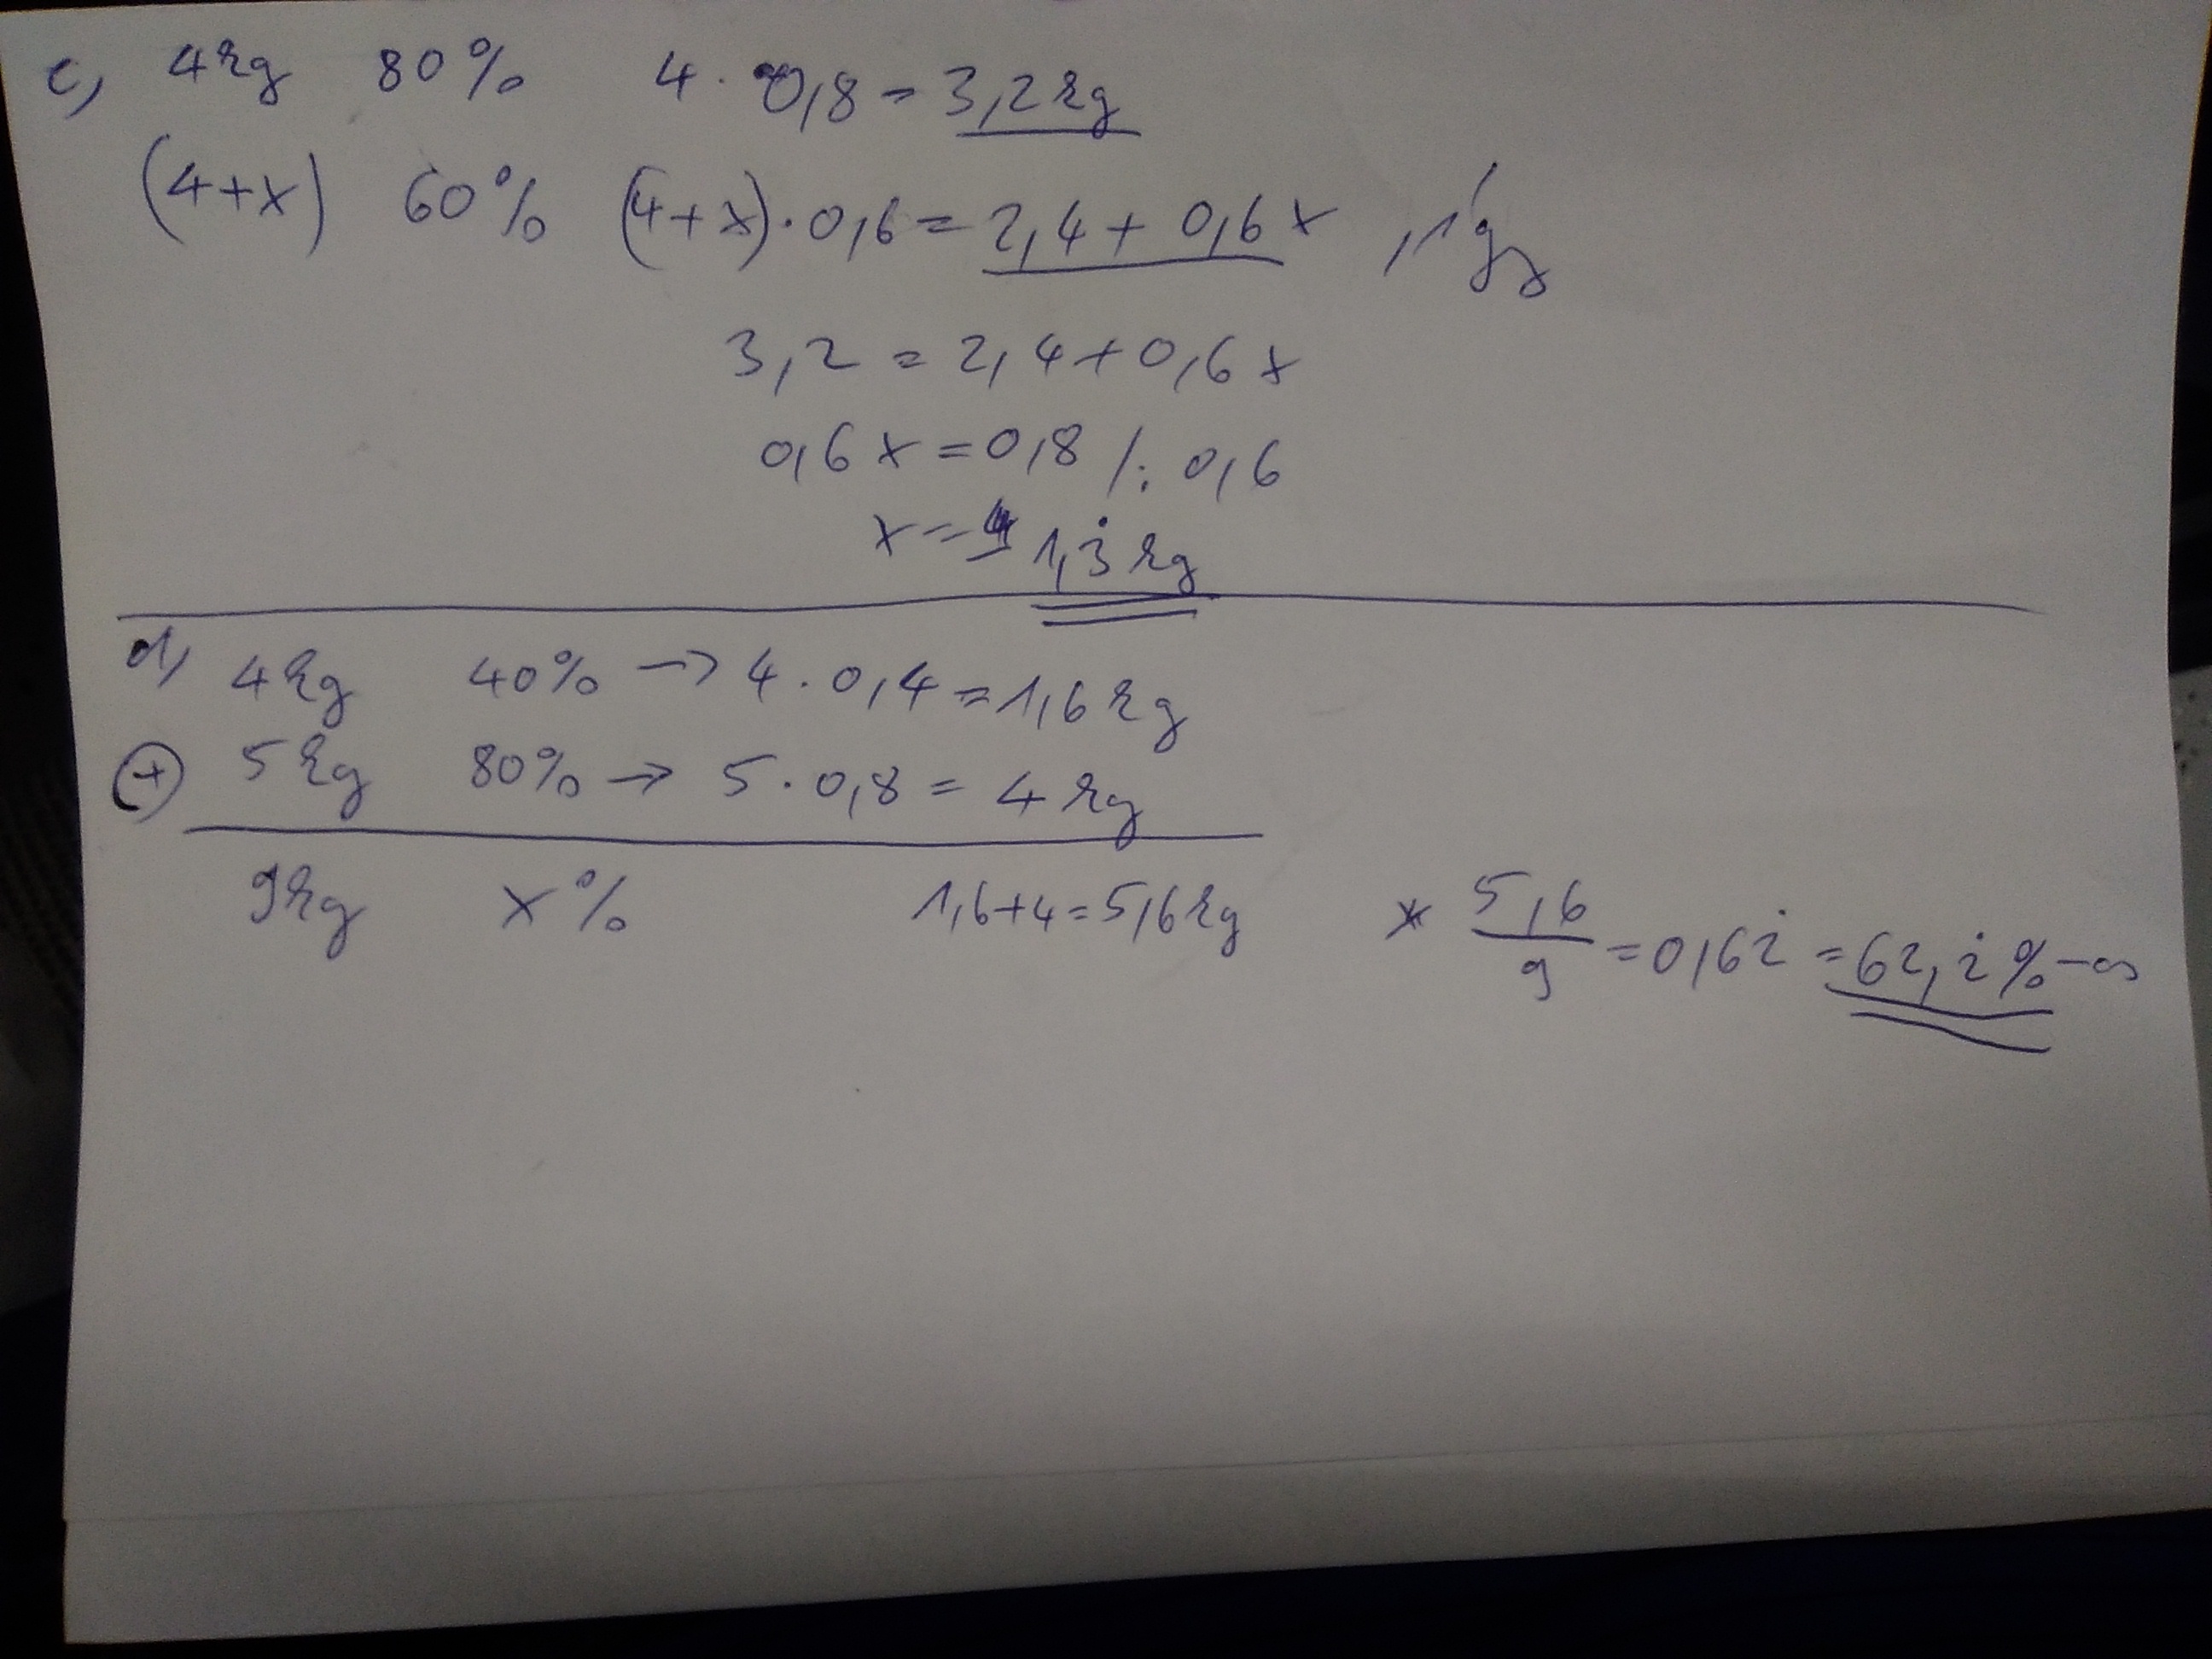 c, 4kg 80% 4 · 0,8 = 3,2kg
(4+x) 60% (4+x)·0,6 = 2,4 + 0,6x , így
3,2 = 2,4+0,6x
0,6x = 0,8 /: 0,6
x = 1,3̇ kg
d, 4kg 40% → 4 · 0,4 = 1,6kg
+ 5kg 80% → 5 · 0,8 = 4kg
9kg x% 1,6+4=5,6kg * 5,6/9 = 0,62̇ = 62,2̇%-os